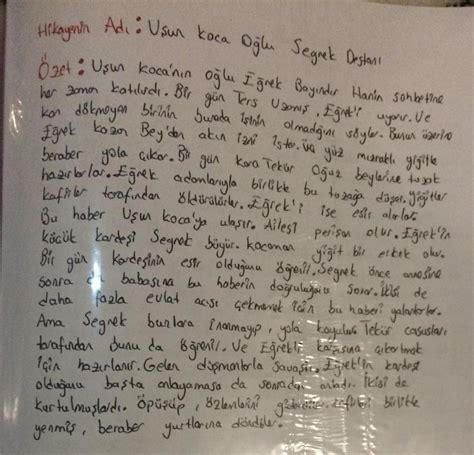 Hikayenin Adı: Uşun Koca Oğlu Segrek Destanı
Özet: Uşun Koca'nın oğlu Eğrek Bayındır Hanın sohbetine
her zaman katılırdı. Bir gün Ters Uzamış, Eğrek'i uyarır. Ve
kan dökmeyen birinin burada işinin olmadığını söyler. Bunun üzerine
Eğrek Kazan Bey'den akın izni ister. Üç yüz mızraklı yiğitle
beraber yola çıkar. Bir gün Kara Tekür Oğuz beylerine tuzak
hazırlarlar. Eğrek adamlarıyla birlikte bu tuzağa düşer. Yiğitler
kafirler tarafından öldürülürler. Eğrek'i ise esir alırlar.
Bu haber Uşun Koca'ya ulaşır. Ailesi perişan olur. Eğrek'in
küçük kardeşi Segrek büyür. Kocaman yiğit bir erkek olur.
Bir gün kardeşinin esir olduğunu öğrenir. Segrek önce annesine
sonra da babasına bu haberin doğruluğunu sorar. İkisi de
daha fazla evlat acısı çekmemek için bu haberi yalanlarlar.
Ama Segrek bunlara inanmayıp, yola koyulur. Tekür casusları
tarafından bunu da öğrenir. Ve Eğrek'i karşısına çıkartmak
için hazırlanır. Gelen düşmanlarla savaşır. Eğrek'in kardeşi
olduğunu başta anlayamasa da sonradan anladı. İkisi de
kurtulmuşlardı. Öpüşüp, özlemlerini giderirler. Kafirleri birlikte
yenmiş, beraber yurtlarına döndüler.